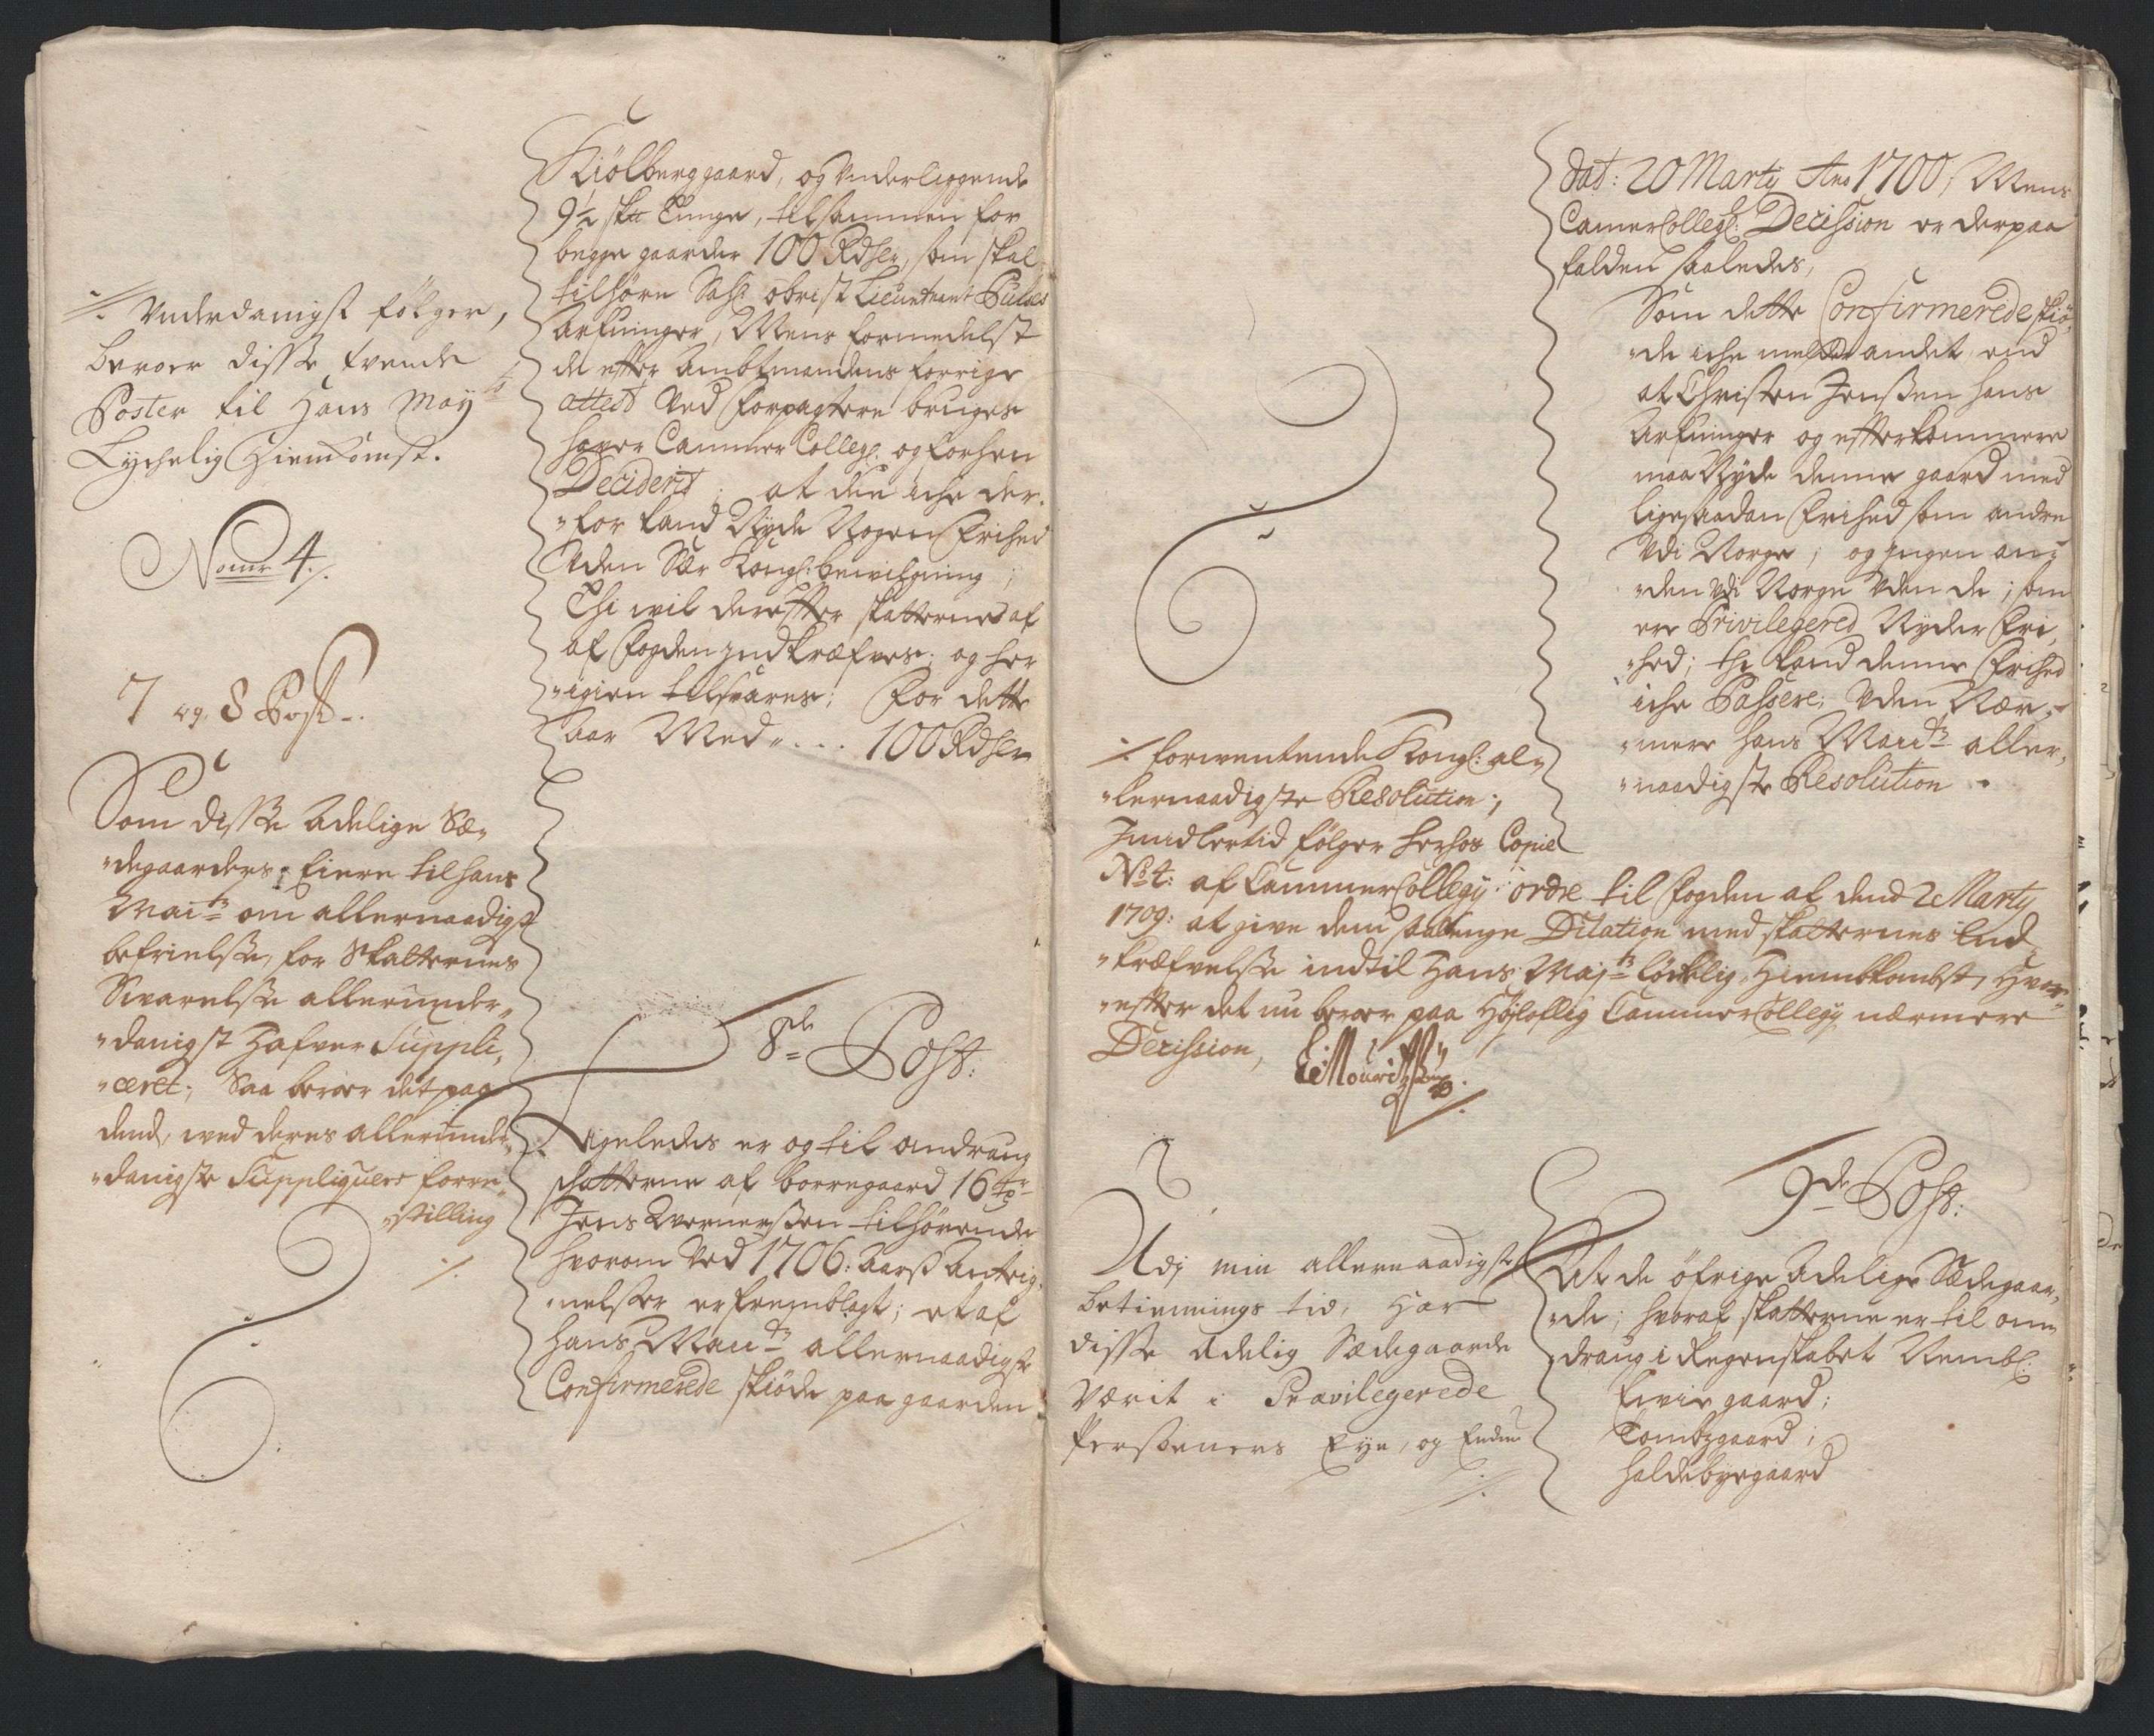 ⁒ Underdanigst følger,
beroer disse tvende
Poster til Hans May
Lychelig Hiemkomst.
Nomr 4 ⁒
7 og 8 Post.
Som disse Adelige Sæ-
"degaarders Eiere til hans
Mai:ts om allernaadigst
befrielse, for Skatternes
Svarelse allerunder-
"danigst Hafver Suppli-
"ceret; Saa beroer det paa
dend, ved deres allerunder-
"danigste Suppliquers forre-
"stilling
⁒
Kiølberggaard, og Underliggende
9½ skt Tunge, tilsammen for
begge gaarder 100 Rdler, som skal
tilhøre Sahl. obrist Lieutenant
Arfvinger, Mens formedelst
de efter Ambtmandens forrige
attest Ved Forpagtere bruges
hafver Cammer Colleg. og forhen
Deciderit; at die iche der-
"for kand Nyde Nogen Frihed
Uden Sær Kongl: bevilgning;
Thi vil derefter skatterne af
af Fogden Indkræfves; og her
"igien tilsvares; For dette
Aar Med " . . . 100 Rdler
8de Post:
Ligeledes er og til andraug
skatterne af borregaard 16
Jens Wernersøen tilhørende
hvorom Ved 1706: Aars Anteig-
"nelser er fremblagt; et af
Hans May:ts allernaadigste
Confirmerede skiøde paa gaarden
dat: 20 Marty Ano 1700, Mens
Camer Colleg: Decission er derpaa
falden saaledes,
Som dette Confirmerede skiø-
"de iche melder andet end
at Christen Jensøen hans
Arfvinger og efterkommere
maa Nyde denne gaard med
ligesaadan Frihed som andre
Udi Norge; og Ingen an-
"den Udi Norge Uden de; som
ere Privilegered Nyder Fri-
"hed; thi kand denne Frihed
iche Passere; Uden Nær-
"mere hans May:ts aller-
"naadigste Resolution.
⁒ forventende Kongl: al-
"lernaadigste Resolution;
Imidlertid følger herhos Copie
No 4: af Cammer Collegij ordre til Fogden af dend 2 Marty
1709: at give dem saa lenge Dilation med skatternes Ind-
"kræfvelse indtil Hans Maj:ts lyckelig Hiembkombst, Hvor-
"efter det nu beroer paa Høyloflig Cammer Collegij nærmere
Decission,
9de Post:
Udj min allernaadigste
betiennings tid, Har
disse Adelig Sædegaarde
Værit i Pravilegerede
Persohners Eye, og Endnu
⁒
At de øfrige Adelige Sædegaar-
"de; hvoraf skatterne er til an-
draug i Regenskabet Nembl:
Evie gaard;
Tombgaard;
Haldebyegaard